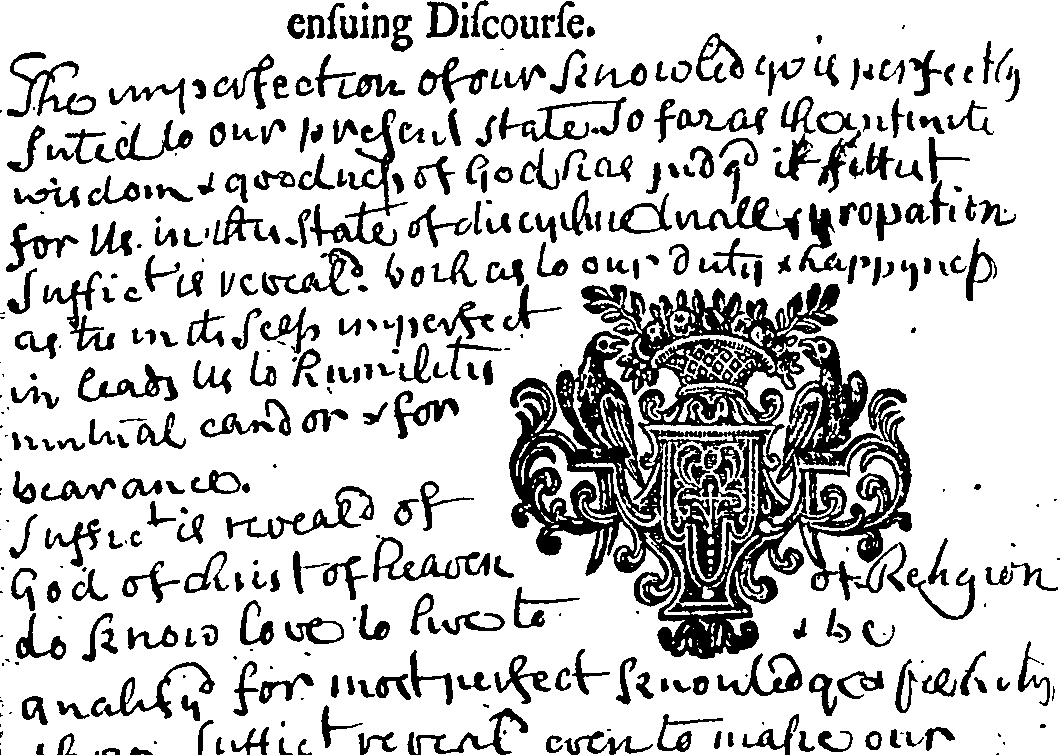 ensuing Discourse.
The imperfection of our knowledge is perfectly
suted to our present state. So far as the infinite
wisdom & goodness of God has judgd it fittest
for us in this state of discipline & propation
Suffict is reveald. both as to our duty & happyness
as tis in its self imperfect
in leads us to humilitie
mutual candor & for
bearance.
Suffict is reveald of
God of christ of heaven of Religion
do know love to live to & be
qualifyd for most perfect knowledge & felicity
Suffict reveald even to make our